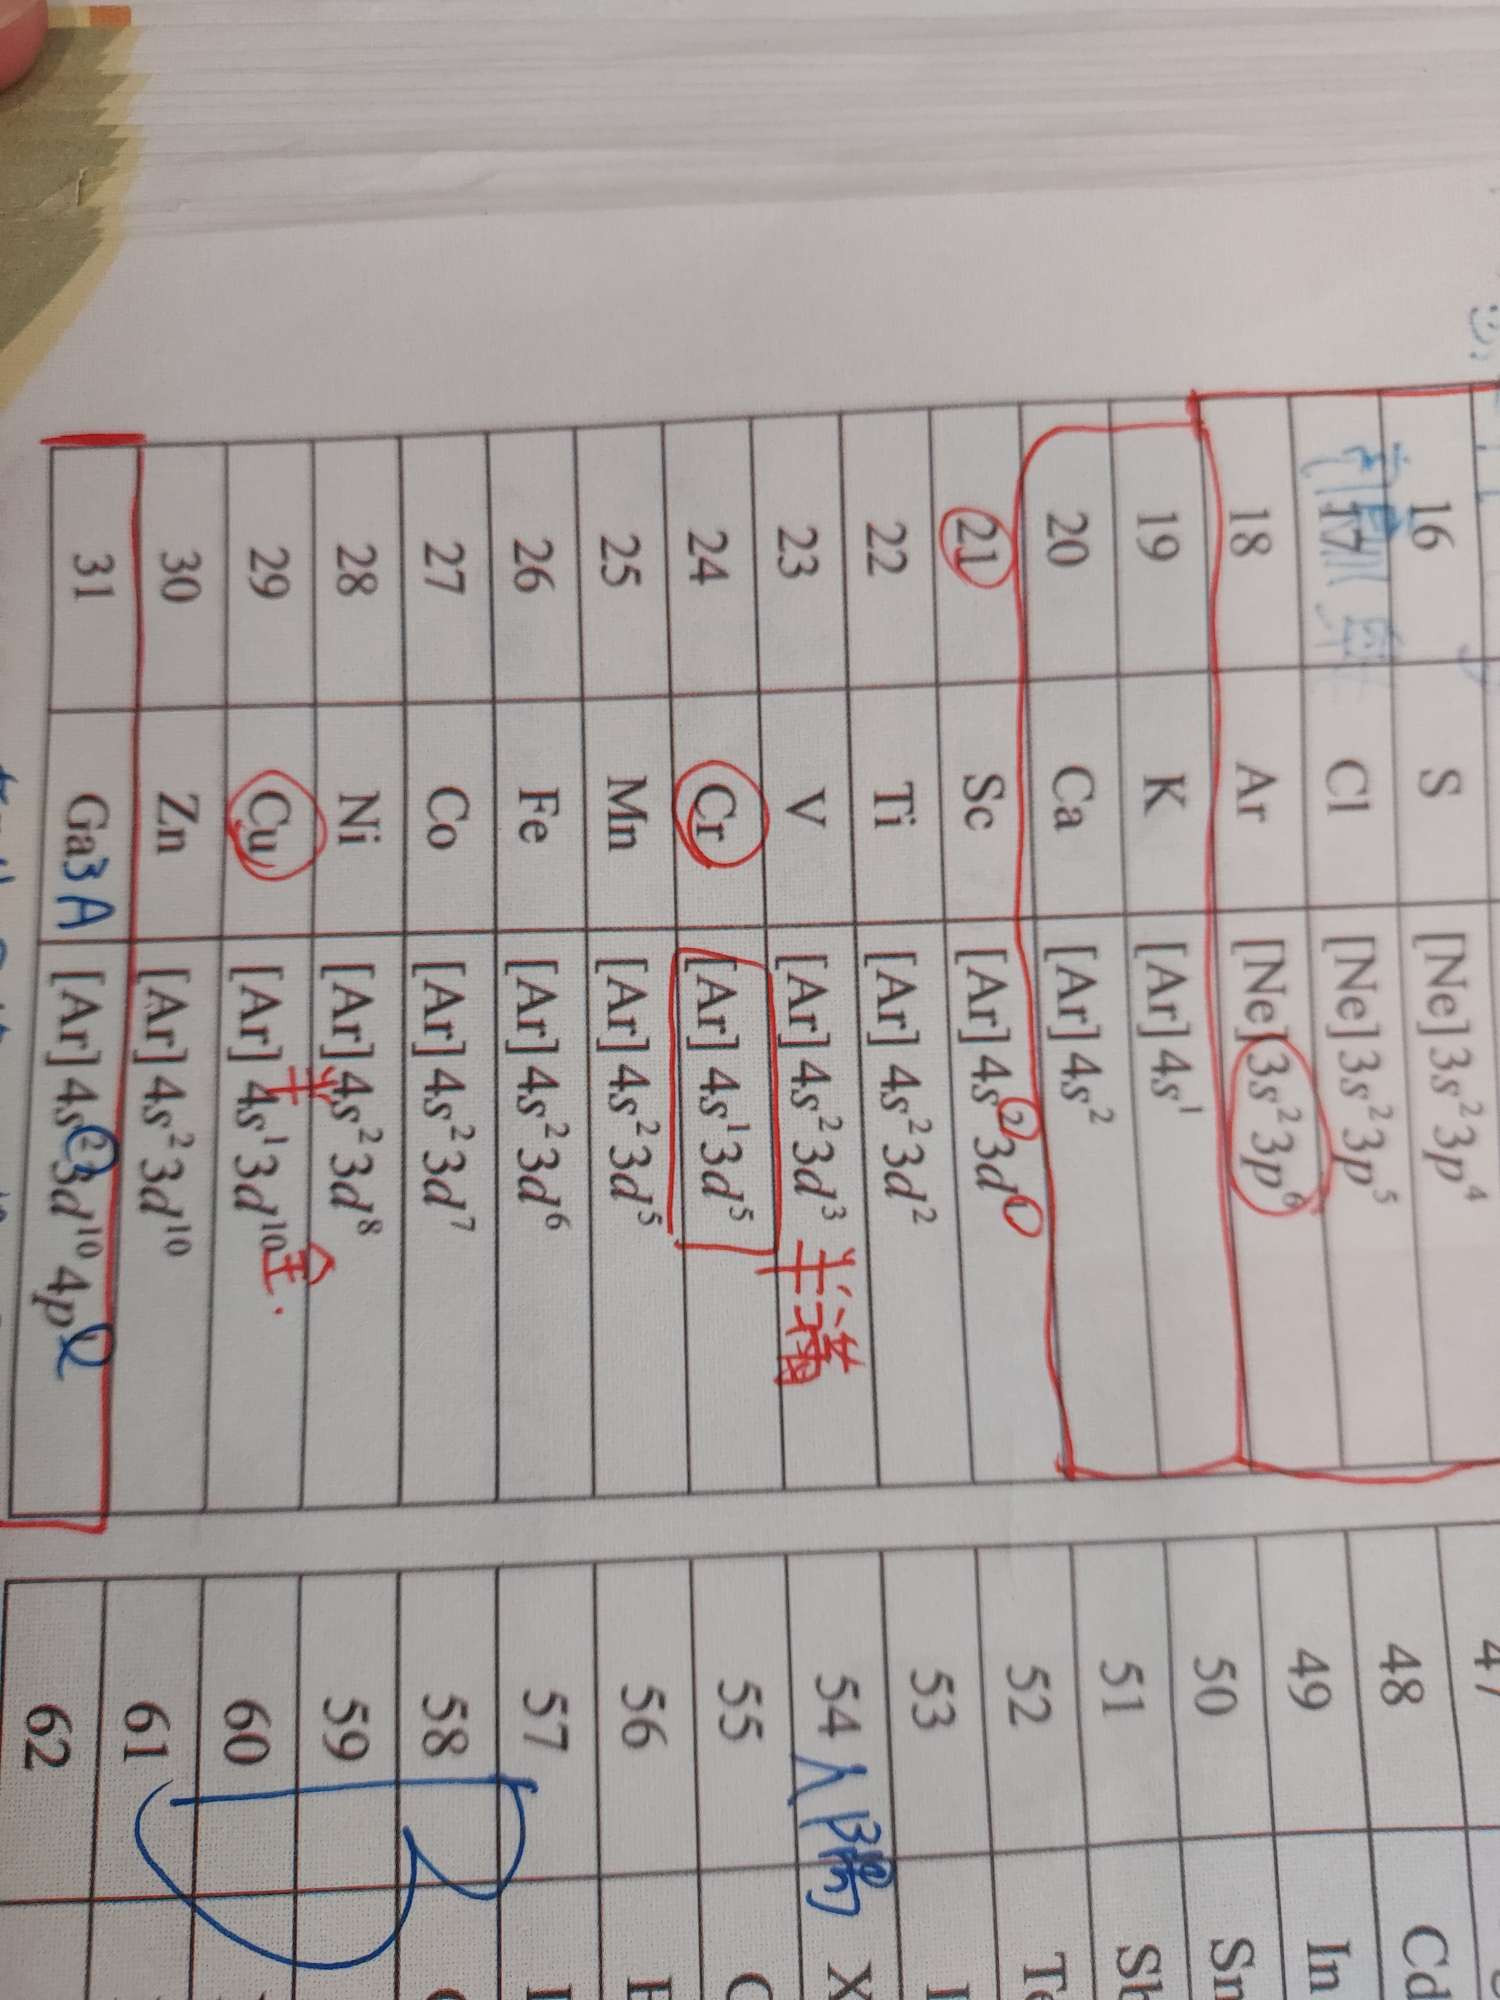 16 S [Ne]3s²3p⁴
17 Cl [Ne]3s²3p⁵
18 Ar [Ne]3s²3p⁶
19 K [Ar]4s¹
20 Ca [Ar]4s²
21 Sc [Ar]4s²3d¹
22 Ti [Ar]4s²3d²
23 V [Ar]4s²3d³ 半滿
24 Cr [Ar]4s¹3d⁵
25 Mn [Ar]4s²3d⁵
26 Fe [Ar]4s²3d⁶
27 Co [Ar]4s²3d⁷
28 Ni [Ar]4s²3d⁸
半 全.
29 Cu [Ar]4s¹3d¹⁰
30 Zn [Ar]4s²3d¹⁰
31 Ga 3A [Ar]4s²3d¹⁰4p¹
47
48 Cd
49 In
50 Sn
51 Sb
52 Te
53
54 X
55
56
57
58
59
60
61
62
B